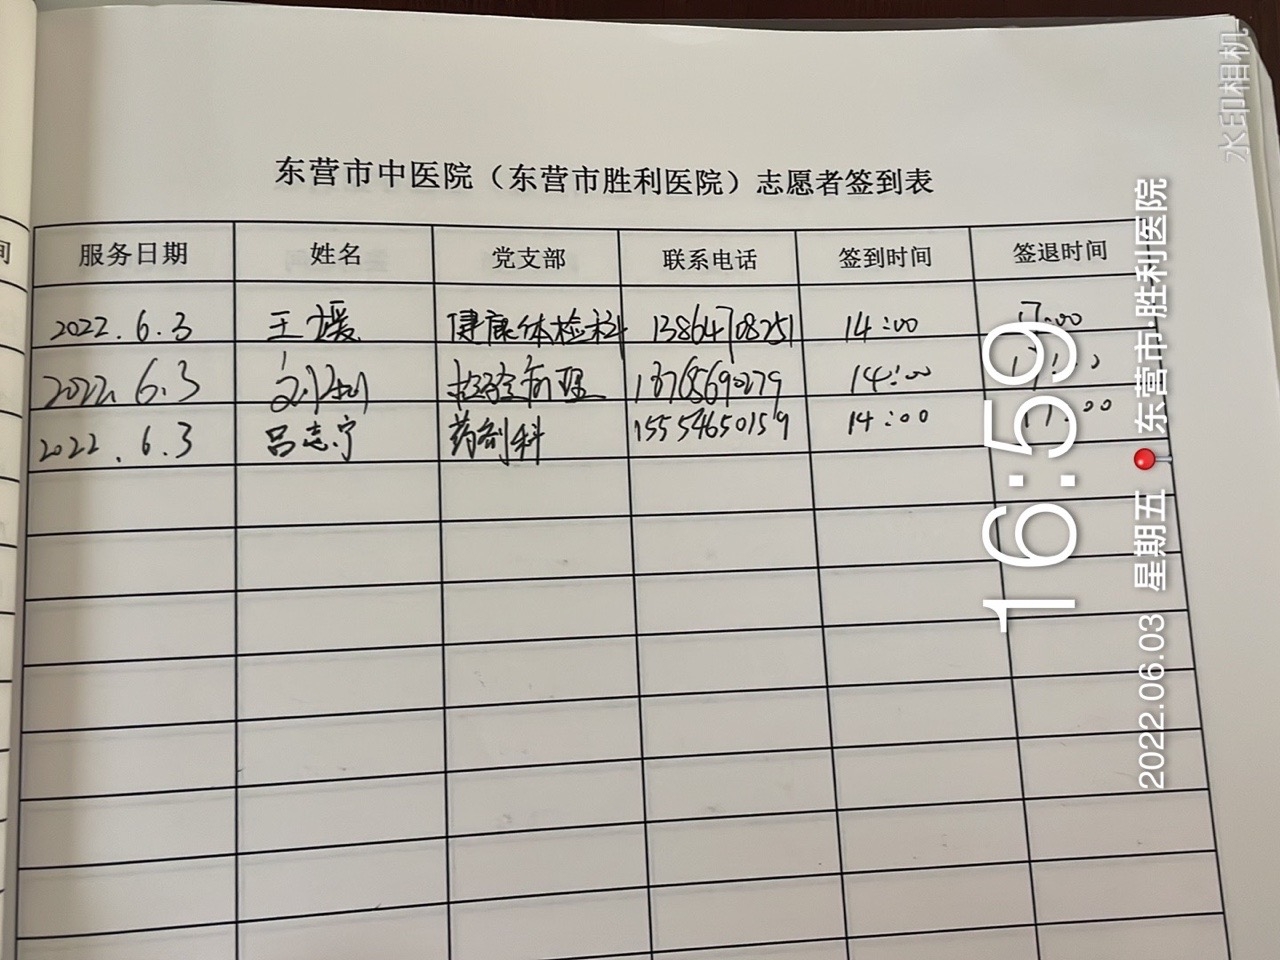 东营市中医院（东营市胜利医院）志愿者签到表
服务日期 姓名 党支部 联系电话 签到时间 签退时间
2022.6.3 王媛 健康体检科 13864708251 14:00 17:00
2022.6.3 检验病理 14:00
2022.6.3 吕志宁 药剂科 15554650159 14:00 17:00
间
16:59
2022.06.03 星期五 东营市·胜利医院
水印相机